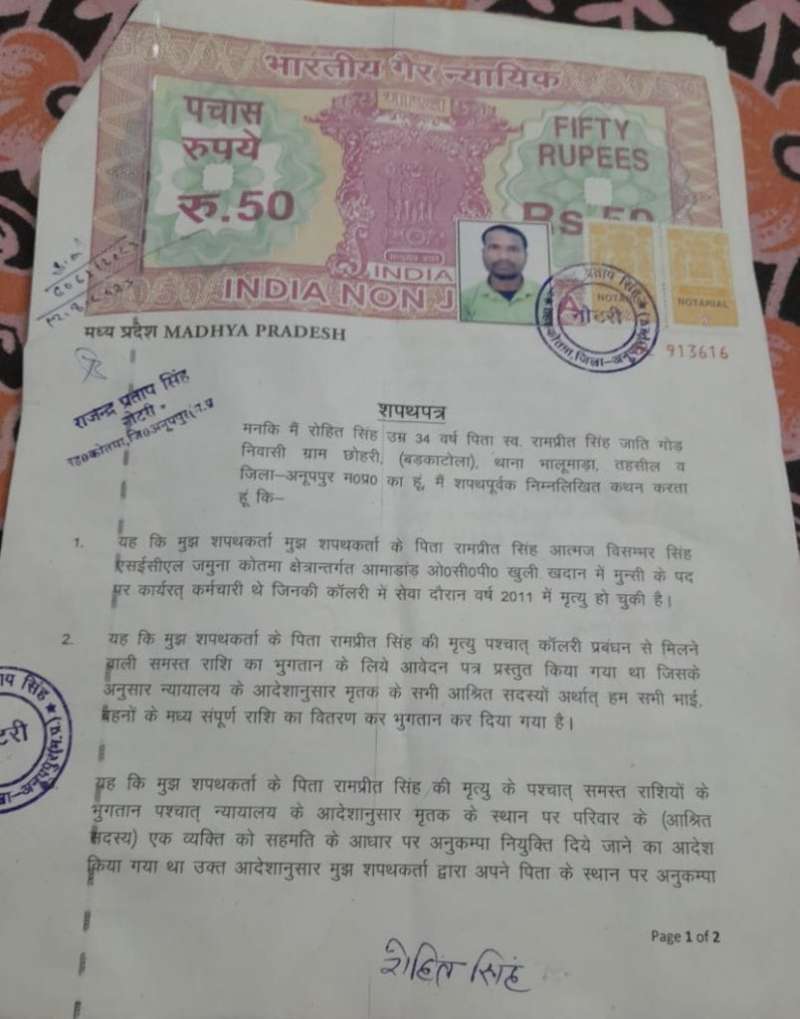 भारतीय गैर न्यायिक
पचास
रुपये
रु.50
FIFTY
RUPEES
Rs.50
INDIA
INDIA NON J
NOTARIAL
प्रताप सिंह
नोटरी
913616
मध्य प्रदेश MADHYA PRADESH
राजेन्द्र प्रताप सिंह
नोटरी
शपथपत्र
मनकि मैं रोहित सिंह उम्र 34 वर्ष पिता स्व. रामप्रीत सिंह जाति गोड
निवासी ग्राम छोहरी, (बडकाटोला), थाना भालूमाड़ा, तहसील व
जिला–अनूपपुर म०प्र० का हूं, मैं शपथपूर्वक निम्नलिखित कथन करता
हूं कि–
1. यह कि मुझ शपथकर्ता मुझ शपथकर्ता के पिता रामप्रीत सिंह आत्मज विसम्भर सिंह
एसईसीएल जमुना कोतमा क्षेत्रान्तर्गत आमाडांड ओ०सी०पी० खुली खदान में मुन्सी के पद
पर कार्यरत् कर्मचारी थे जिनकी कॉलरी में सेवा दौरान वर्ष 2011 में मृत्यु हो चुकी है।
2. यह कि मुझ शपथकर्ता के पिता रामप्रीत सिंह की मृत्यु पश्चात् कॉलरी प्रबंधन से मिलने
वाली समस्त राशि का भुगतान के लिये आवेदन पत्र प्रस्तुत किया गया था जिसके
अनुसार न्यायालय के आदेशानुसार मृतक के सभी आश्रित सदस्यों अर्थात् हम सभी भाई,
बहनों के मध्य संपूर्ण राशि का वितरण कर भुगतान कर दिया गया है।
यह कि मुझ शपथकर्ता के पिता रामप्रीत सिंह की मृत्यु के पश्चात् समस्त राशियों के
भुगतान पश्चात् न्यायालय के आदेशानुसार मृतक के स्थान पर परिवार के (आश्रित
सदस्य) एक व्यक्ति को सहमति के आधार पर अनुकम्पा नियुक्ति दिये जाने का आदेश
किया गया था उक्त आदेशानुसार मुझ शपथकर्ता द्वारा अपने पिता के स्थान पर अनुकम्पा
Page 1 of 2
रोहित सिंह